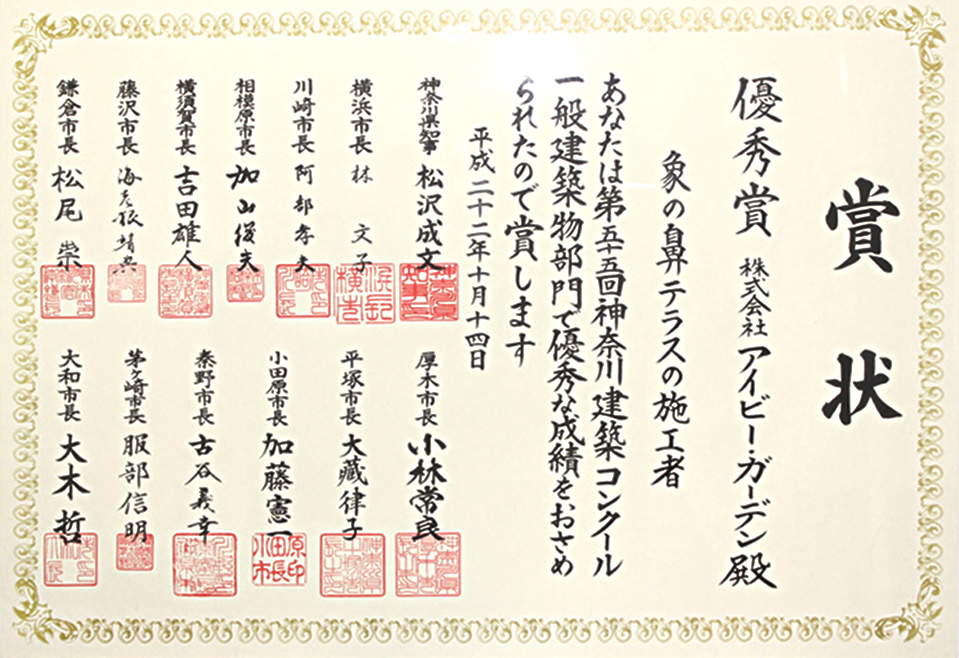 賞状
優秀賞 株式会社アイビー・ガーデン殿
象の鼻テラスの施工者
あなたは第五十五回神奈川建築コンクール
一般建築物部門で優秀な成績をおさめ
られたので賞します
平成二十二年十月十四日
神奈川県知事 松沢成文
横浜市長 林 文子
川崎市長 阿部孝夫
相模原市長 加山俊夫
横須賀市長 吉田雄人
藤沢市長 海老根靖典
鎌倉市長 松尾 崇
厚木市長 小林常良
平塚市長 大藏律子
小田原市長 加藤憲一
秦野市長 古谷義幸
茅ヶ崎市長 服部信明
大和市長 大木 哲